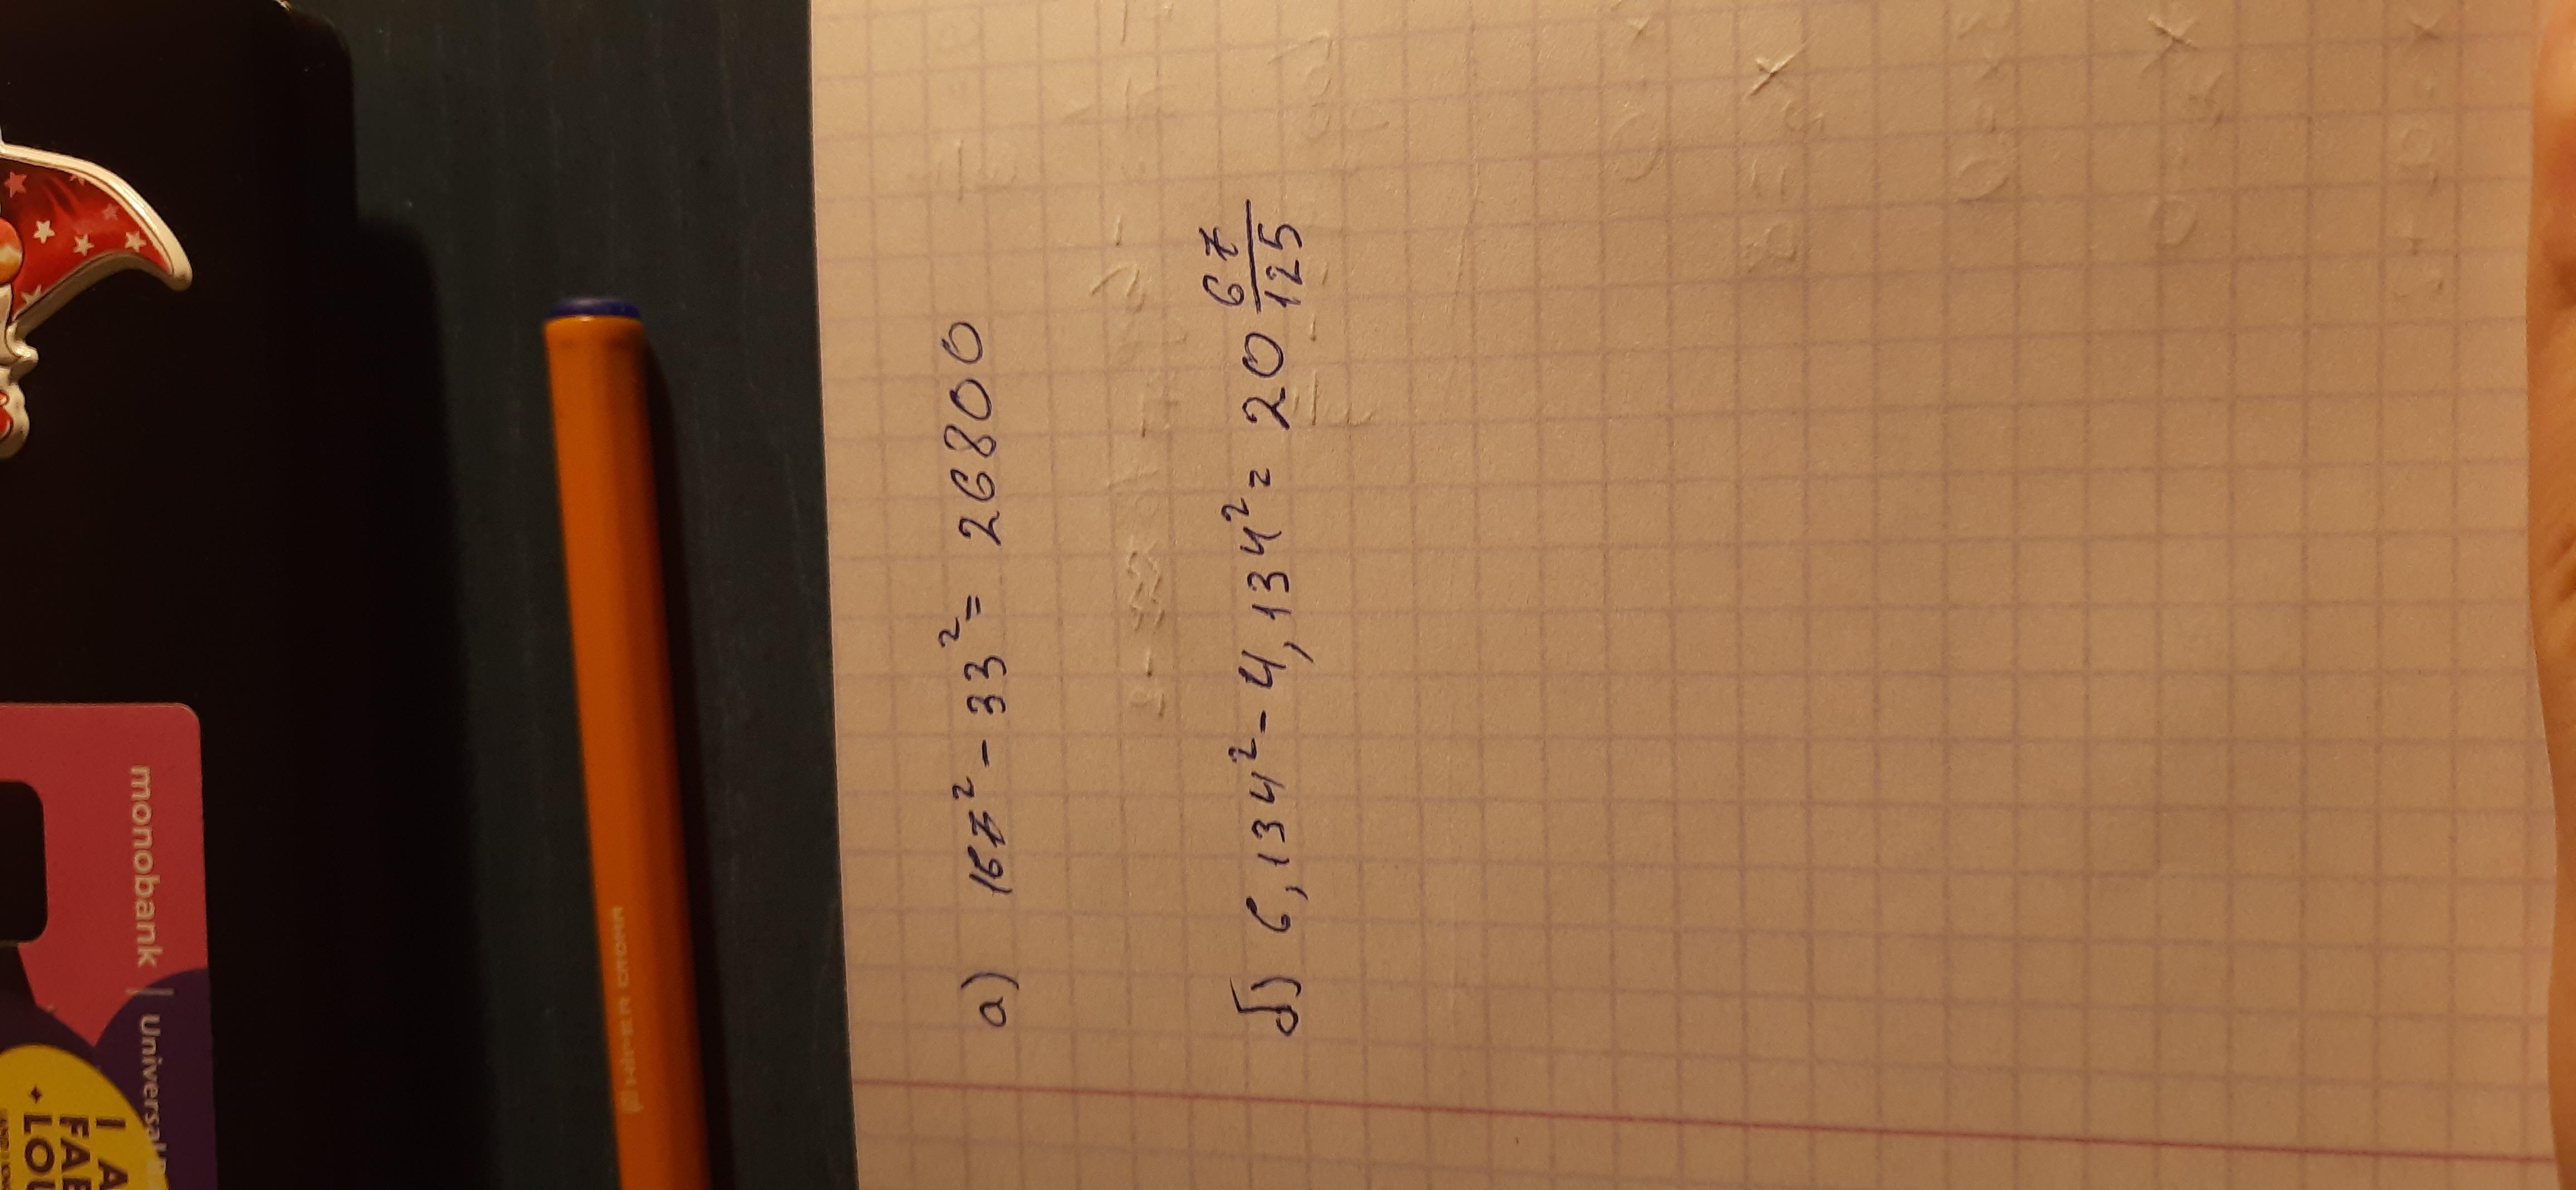 а) 167² - 33² = 26800
б) 6,134² - 4,134² = 20 67/125
monobank | Universal
I A
FAB
LOU
HIPER CROMA